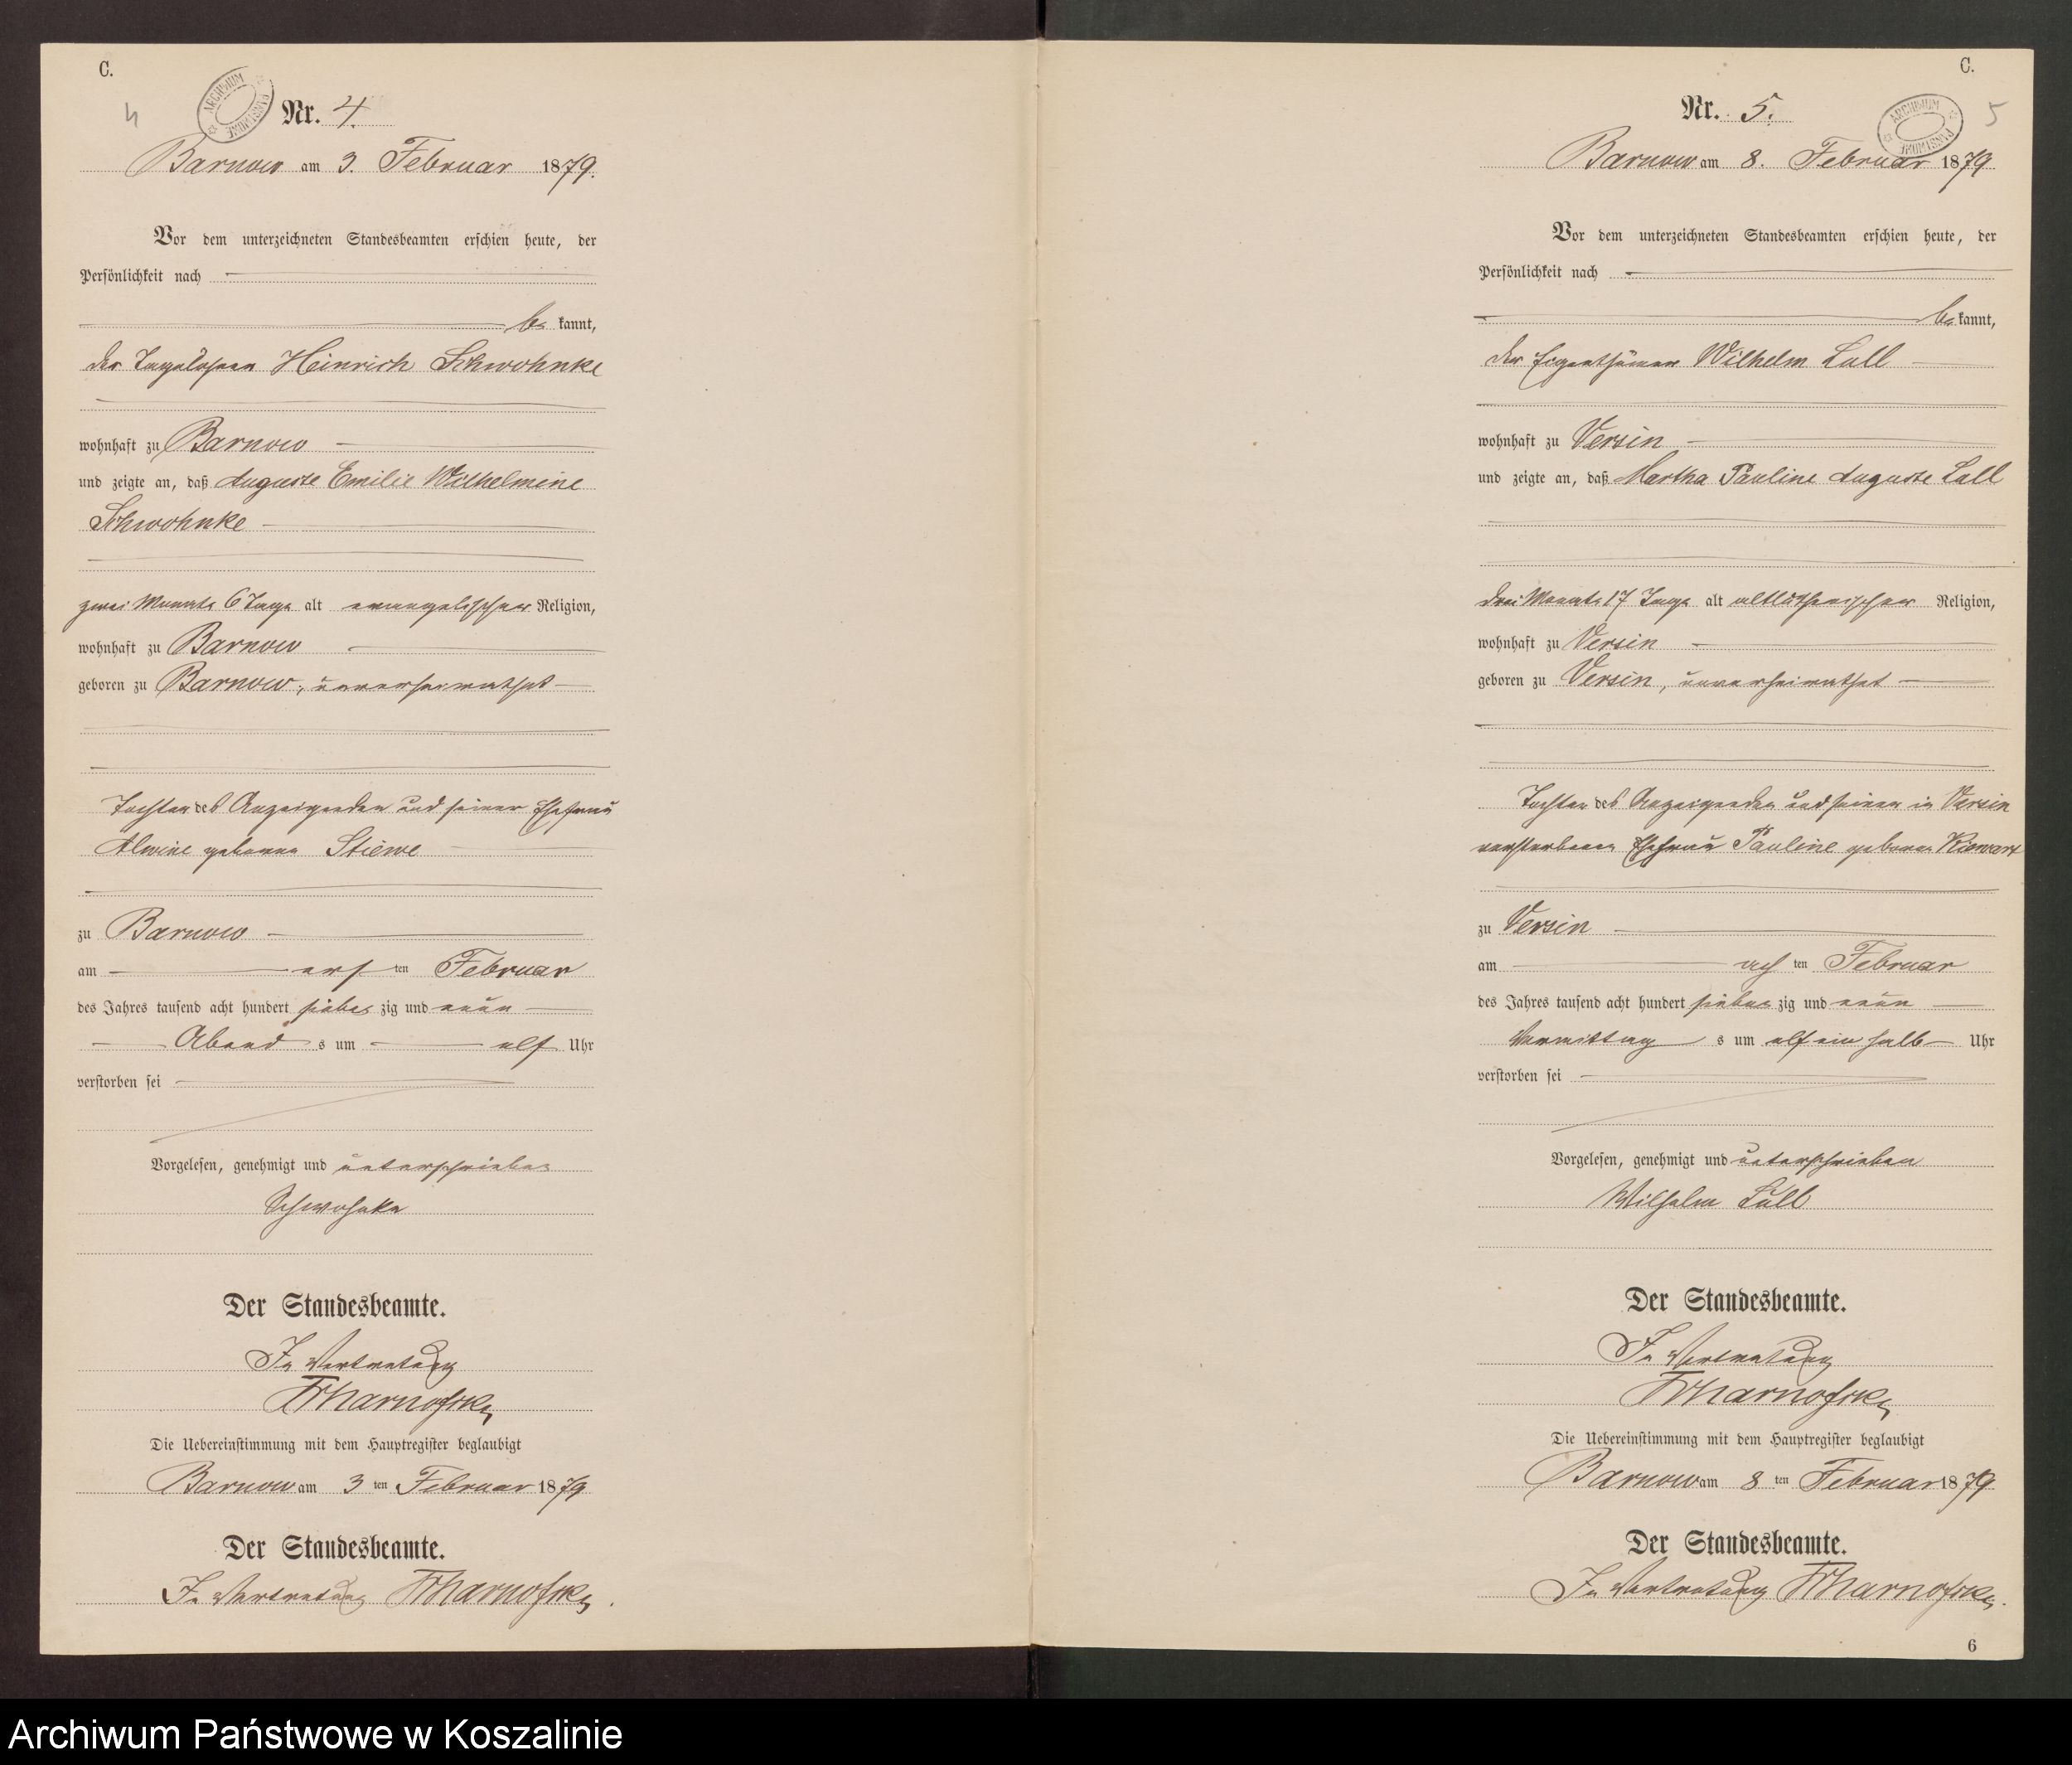 C.
4
ARCHIWUM PAŃSTWOWE
Nr. 4.
Barnow am 3. Februar 1879.
Vor dem unterzeichneten Standesbeamten erschien heute, der
Persönlichkeit nach
be kannt,
der Tagelöhner Heinrich Schwohnke
wohnhaft zu Barnow
und zeigte an, daß Auguste Emilie Wilhelmine
Schwohnke
zwei Monate 6 Tage alt evangelischer Religion,
wohnhaft zu Barnow
geboren zu Barnow, unverheirathet
Tochter des Anzeigenden und seiner Ehefrau
Alwine geborene Stiewe
zu Barnow
am ers ten Februar
des Jahres tausend acht hundert sieben zig und neun
Abend s um elf Uhr
verstorben sei
Vorgelesen, genehmigt und unterschrieben
Schwohnke
Der Standesbeamte.
In Vertretung
Die Uebereinstimmung mit dem Hauptregister beglaubigt
Barnow am 3 ten Februar 1879
Der Standesbeamte.
In Vertretung
C.
5
ARCHIWUM PAŃSTWOWE
Nr. 5.
Barnow am 8. Februar 1879
Vor dem unterzeichneten Standesbeamten erschien heute, der
Persönlichkeit nach
be kannt,
der Eigenthümer Wilhelm Lall
wohnhaft zu Versin
und zeigte an, daß Martha Pauline Auguste Lall
drei Monate 17 Tage alt altlutherischer Religion,
wohnhaft zu Versin
geboren zu Versin, unverheirathet
Tochter des Anzeigenden und seiner in Versin
verstorbenen Ehefrau Pauline geborene
zu Versin
am ach ten Februar
des Jahres tausend acht hundert sieben zig und neun
Vormittag s um elf ein halb Uhr
verstorben sei
Vorgelesen, genehmigt und unterschrieben
Wilhelm Lall
Der Standesbeamte.
In Vertretung
Die Uebereinstimmung mit dem Hauptregister beglaubigt
Barnow am 8 ten Februar 1879
Der Standesbeamte.
In Vertretung
6
Archiwum Państwowe w Koszalinie